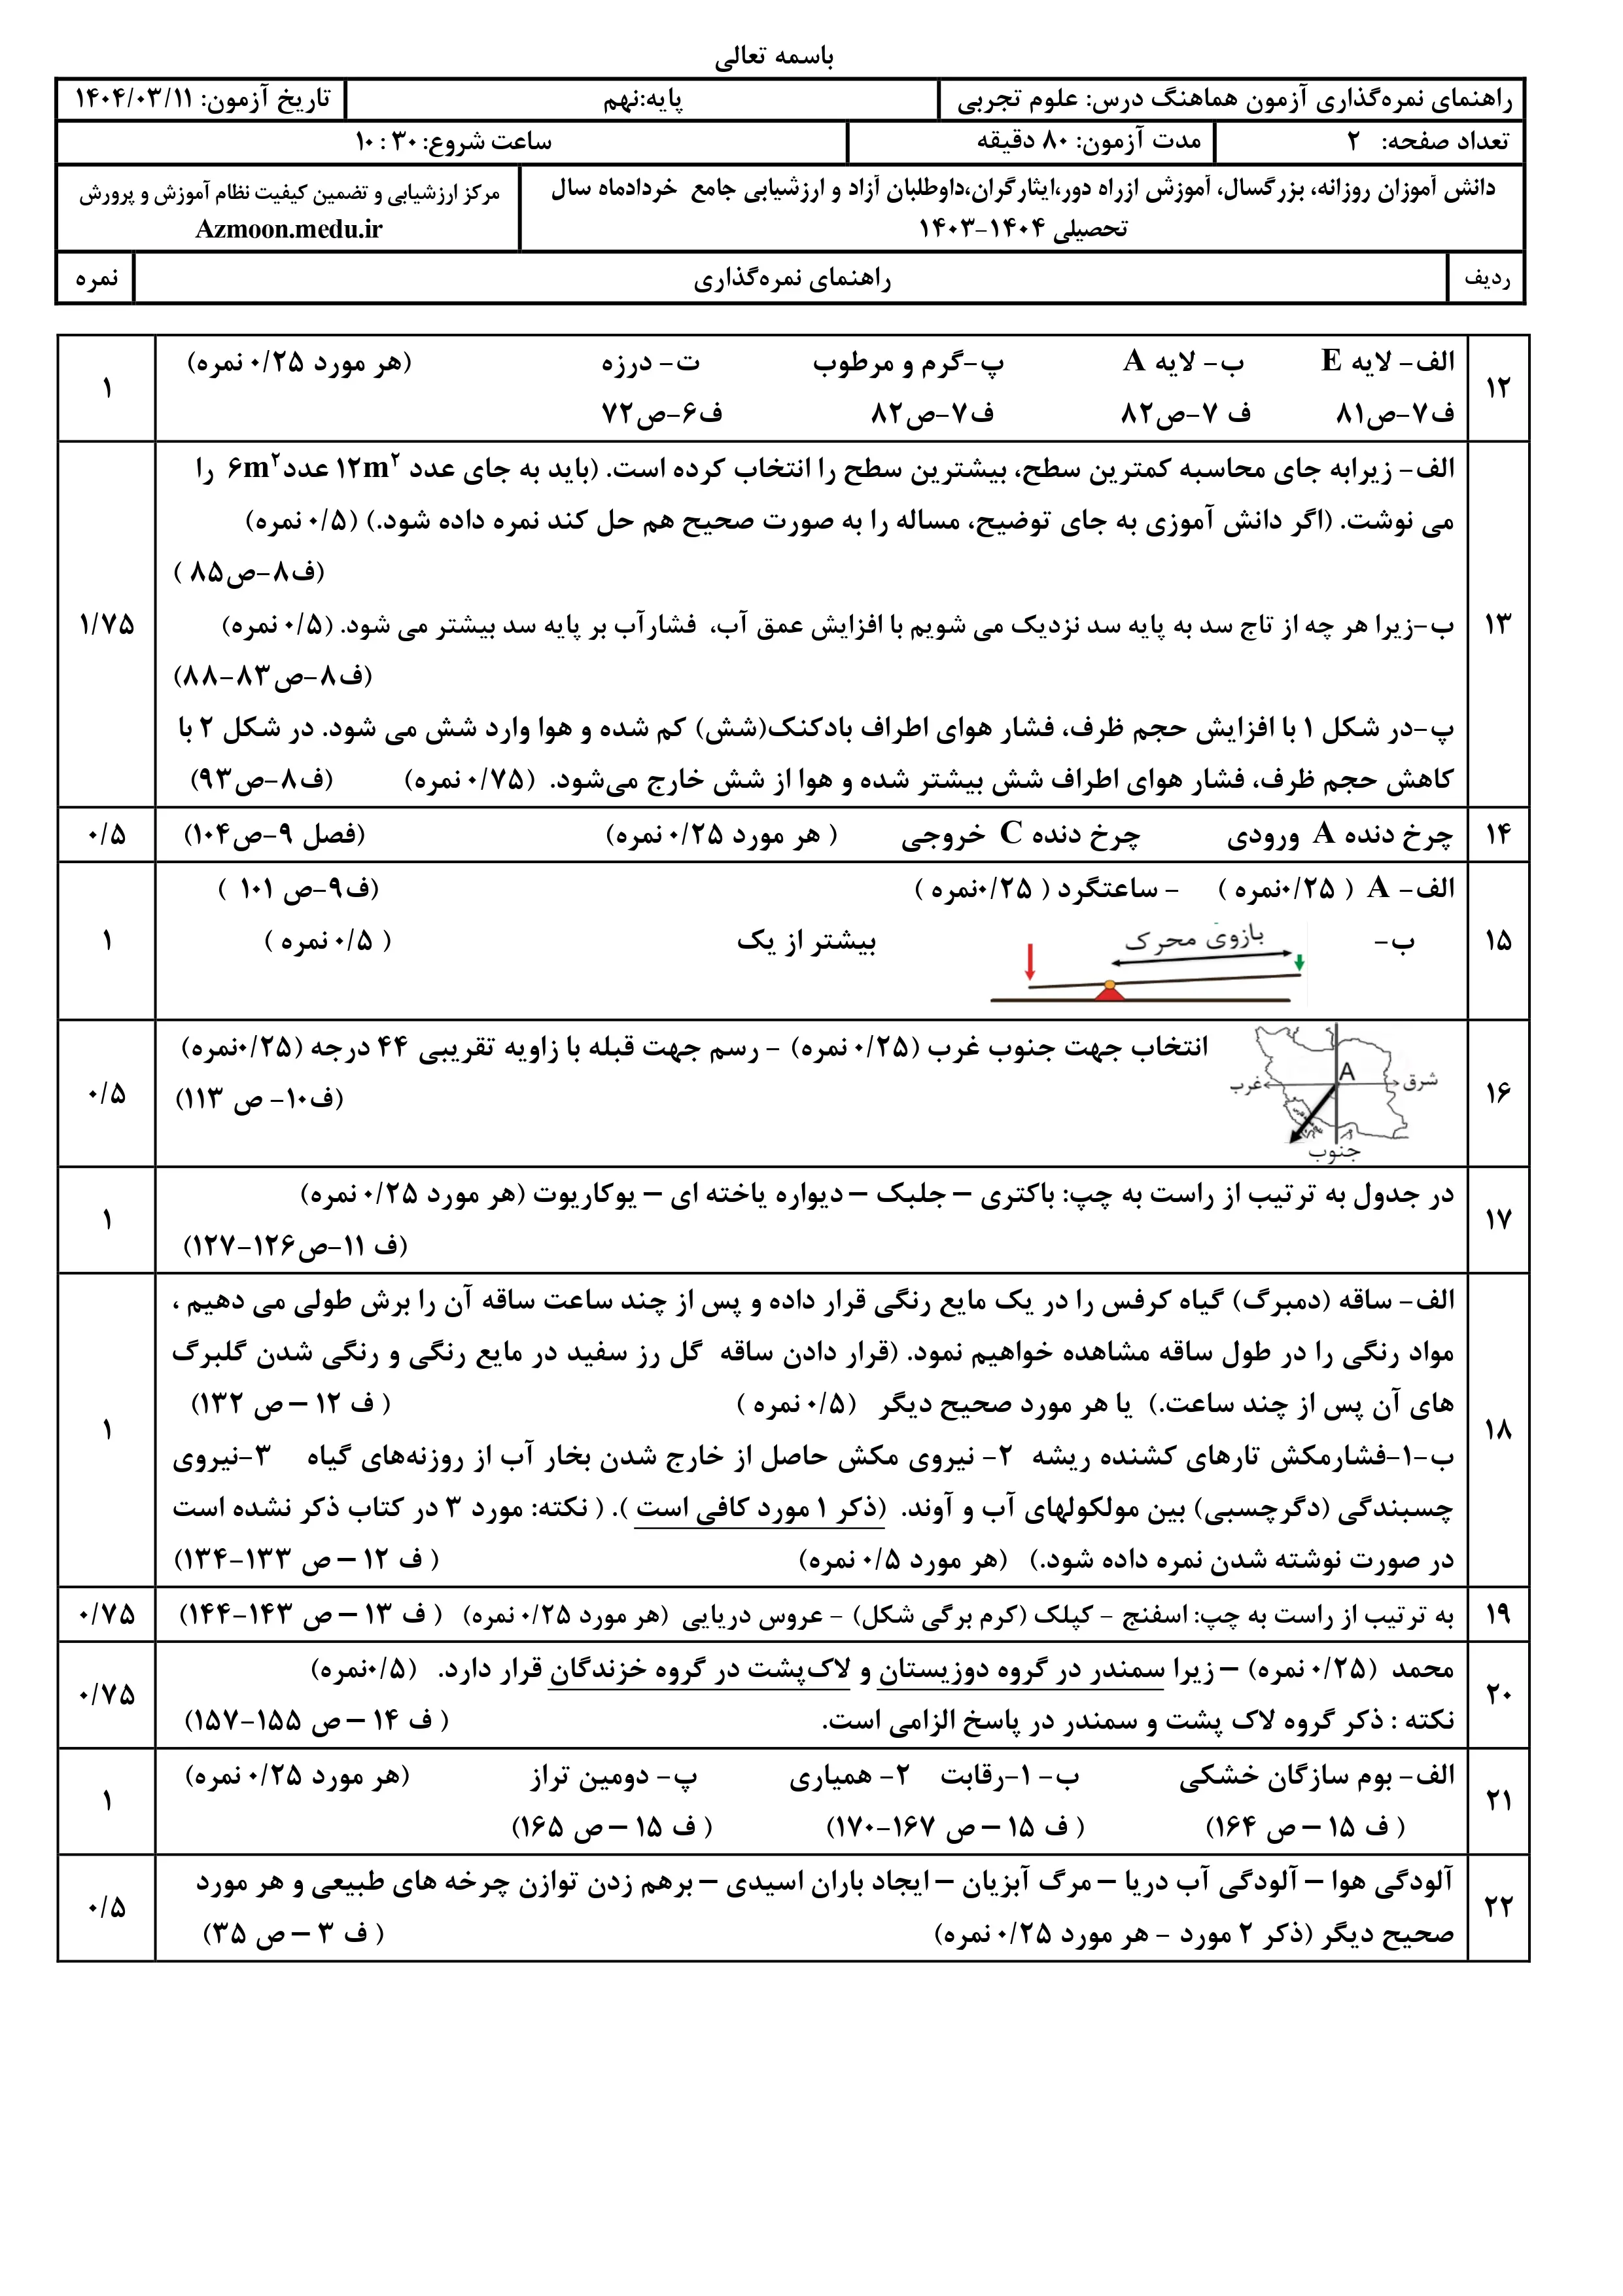 باسمه تعالی
راهنمای نمره‌گذاری آزمون هماهنگ درس: علوم تجربی پایه:نهم تاریخ آزمون: ۱۴۰۴/۰۳/۱۱
تعداد صفحه: ۲ مدت آزمون: ۸۰ دقیقه ساعت شروع: ۳۰ : ۱۰
دانش آموزان روزانه، بزرگسال، آموزش ازراه دور،ایثارگران،داوطلبان آزاد و ارزشیابی جامع خردادماه سال
تحصیلی ۱۴۰۴-۱۴۰۳
مرکز ارزشیابی و تضمین کیفیت نظام آموزش و پرورش
Azmoon.medu.ir
ردیف راهنمای نمره‌گذاری نمره
۱۲
الف- لایه E ب- لایه A پ-گرم و مرطوب ت- درزه (هر مورد ۰/۲۵ نمره)
ف۷-ص۸۱ ف ۷-ص۸۲ ف۷-ص۸۲ ف۶-ص۷۲
۱
۱۳
الف- زیرابه جای محاسبه کمترین سطح، بیشترین سطح را انتخاب کرده است. (باید به جای عدد ۱۲m۲ عدد۶m۲ را
می نوشت. (اگر دانش آموزی به جای توضیح، مساله را به صورت صحیح هم حل کند نمره داده شود.) (۰/۵ نمره)
(ف۸-ص۸۵ )
ب-زیرا هر چه از تاج سد به پایه سد نزدیک می شویم با افزایش عمق آب، فشارآب بر پایه سد بیشتر می شود. (۰/۵ نمره)
(ف۸-ص۸۳-۸۸)
پ-در شکل ۱ با افزایش حجم ظرف، فشار هوای اطراف بادکنک(شش) کم شده و هوا وارد شش می شود. در شکل ۲ با
کاهش حجم ظرف، فشار هوای اطراف شش بیشتر شده و هوا از شش خارج می‌شود. (۰/۷۵ نمره) (ف۸-ص۹۳)
۱/۷۵
۱۴ چرخ دنده A ورودی چرخ دنده C خروجی ( هر مورد ۰/۲۵ نمره) (فصل ۹-ص۱۰۴) ۰/۵
۱۵
الف- A ( ۰/۲۵نمره ) - ساعتگرد ( ۰/۲۵نمره ) (ف۹-ص ۱۰۱ )
ب- بازوی محرک بیشتر از یک ( ۰/۵ نمره )
۱
۱۶
A شرق غرب جنوب
انتخاب جهت جنوب غرب (۰/۲۵ نمره) - رسم جهت قبله با زاویه تقریبی ۴۴ درجه (۰/۲۵نمره)
(ف۱۰- ص ۱۱۳)
۰/۵
۱۷
در جدول به ترتیب از راست به چپ: باکتری – جلبک – دیواره یاخته ای – یوکاریوت (هر مورد ۰/۲۵ نمره)
(ف ۱۱-ص۱۲۶-۱۲۷)
۱
۱۸
الف- ساقه (دمبرگ) گیاه کرفس را در یک مایع رنگی قرار داده و پس از چند ساعت ساقه آن را برش طولی می دهیم ،
مواد رنگی را در طول ساقه مشاهده خواهیم نمود. (قرار دادن ساقه گل رز سفید در مایع رنگی و رنگی شدن گلبرگ
های آن پس از چند ساعت.) یا هر مورد صحیح دیگر (۰/۵ نمره ) ( ف ۱۲ – ص ۱۳۲)
ب-۱-فشارمکش تارهای کشنده ریشه ۲- نیروی مکش حاصل از خارج شدن بخار آب از روزنه‌های گیاه ۳-نیروی
چسبندگی (دگرچسبی) بین مولکولهای آب و آوند. (ذکر ۱ مورد کافی است ). ( نکته: مورد ۳ در کتاب ذکر نشده است
در صورت نوشته شدن نمره داده شود.) (هر مورد ۰/۵ نمره) ( ف ۱۲ – ص ۱۳۳-۱۳۴)
۱
۱۹ به ترتیب از راست به چپ: اسفنج - کپلک (کرم برگی شکل) - عروس دریایی (هر مورد ۰/۲۵ نمره) ( ف ۱۳ – ص ۱۴۳-۱۴۴) ۰/۷۵
۲۰
محمد (۰/۲۵ نمره) – زیرا سمندر در گروه دوزیستان و لاک‌پشت در گروه خزندگان قرار دارد. (۰/۵نمره)
نکته : ذکر گروه لاک پشت و سمندر در پاسخ الزامی است. ( ف ۱۴ – ص ۱۵۵-۱۵۷)
۰/۷۵
۲۱
الف- بوم سازگان خشکی ب- ۱-رقابت ۲- همیاری پ- دومین تراز (هر مورد ۰/۲۵ نمره)
( ف ۱۵ – ص ۱۶۴) ( ف ۱۵ – ص ۱۶۷-۱۷۰) ( ف ۱۵ – ص ۱۶۵)
۱
۲۲
آلودگی هوا – آلودگی آب دریا – مرگ آبزیان – ایجاد باران اسیدی – برهم زدن توازن چرخه های طبیعی و هر مورد
صحیح دیگر (ذکر ۲ مورد - هر مورد ۰/۲۵ نمره) ( ف ۳ – ص ۳۵)
۰/۵